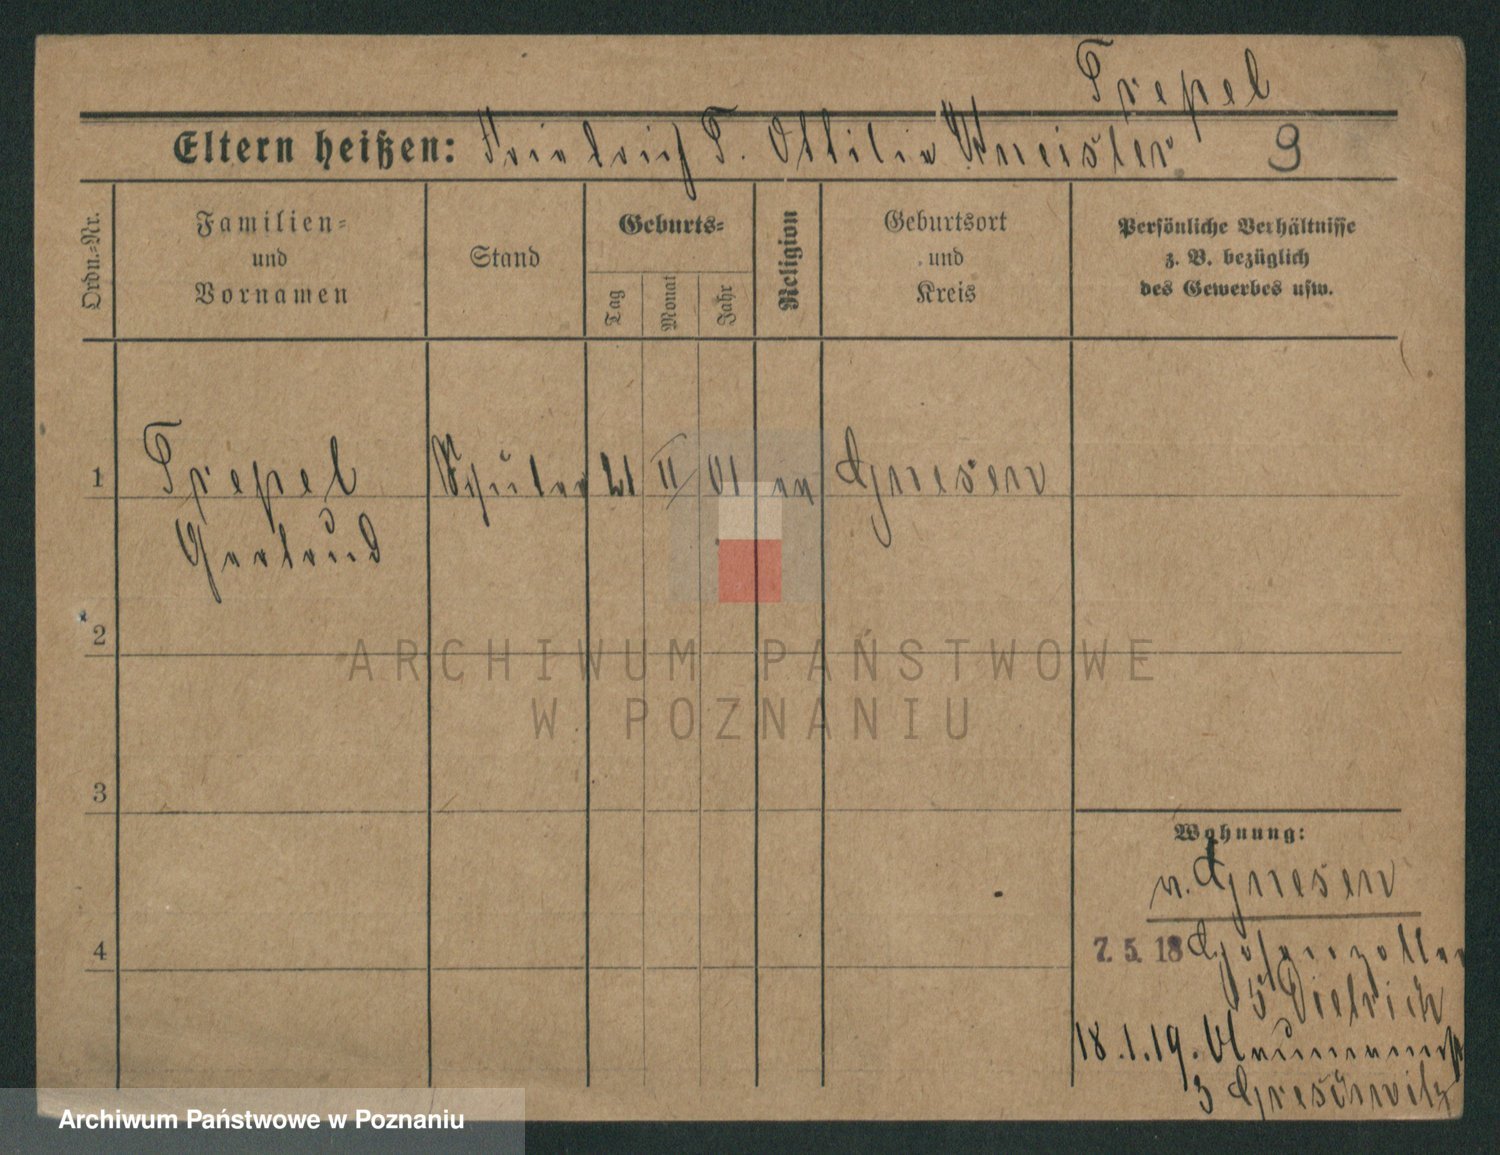 Trepel
Eltern heißen: Friedrich T. Ottilie Kneisler 9
Ordn.-Nr.
Familien-
und
Vornamen
Stand
Geburts-
Tag
Monat
Jahr
Religion
Geburtsort
und
Kreis
Persönliche Verhältnisse
z. B. bezüglich
des Gewerbes usw.
1 Trepel II 01 Gnesen
Gertrud
2
ARCHIWUM PAŃSTWOWE
W POZNANIU
3
Wohnung:
v. Gnesen
7. 5. 18 Hohenzollern
5 Dietrich
18.1.19. Naumannst
3 Greschwitz
4
Archiwum Państwowe w Poznaniu